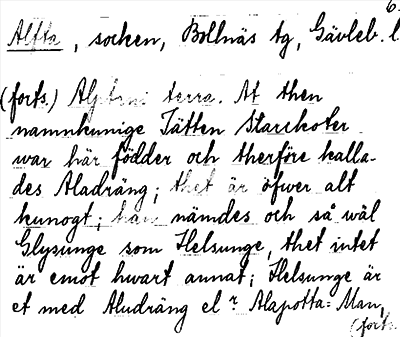 6.
Alfta, socken, Bollnäs tg, Gävleb. l.
(forts.) terra. At then
namnkunige Jätten Starckoter
war här födder och therföre kalla-
des Aladräng; thet är öfwer alt
kunogt; han nämdes och så wäl
Glysunge som Helsunge, thet intet
är emot hwart annat; Helsunge är
et med Aludräng el r Alapotta=Man,
(forts.